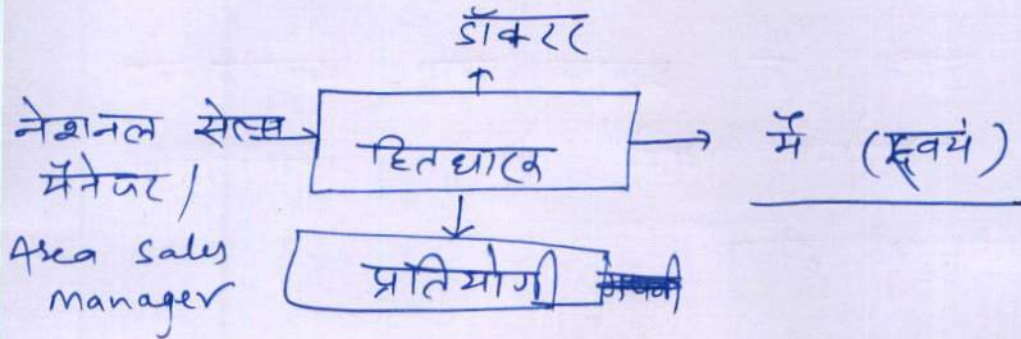 डॉक्टर
नेशनल सेल्स
मैनेजर /
Area Sales
manager
हितधारक
मैं (स्वयं)
प्रतियोगी